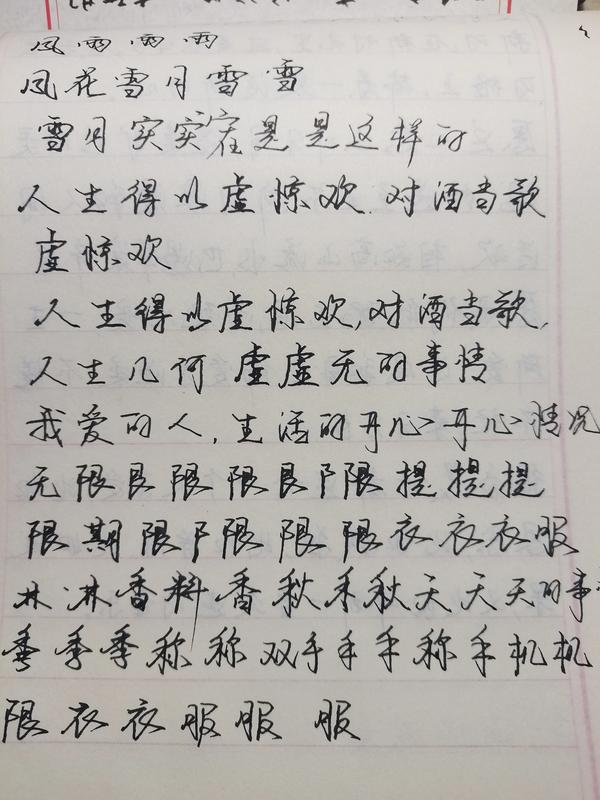 风雨雨雨
风花雪月雪雪
雪月实实宿是是这样的
人生得以虚惊欢.对酒当歌
虚惊欢
人生得以虚惊欢,对酒当歌,
人生几何虚虚无的事情
我爱的人,生活的开心开心情况
无限艮限限艮阝限提提提
限期限阝限限限衣衣衣服
林林香料香秋禾秋天天天的事
季季季称称双手手手称手机机
限衣衣服服服